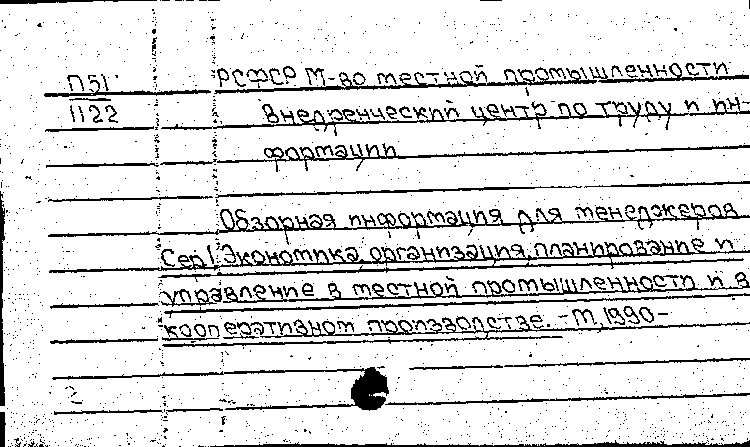 П51 РСФСР М-во местной промышленности
1122 Внедренческий центр по труду и ин-
формации
Обзорная информация для менеджеров
Сер1. Экономика, организация, планирование и
управление в местной промышленности и в
кооперативном производстве. -М, 1990-
2